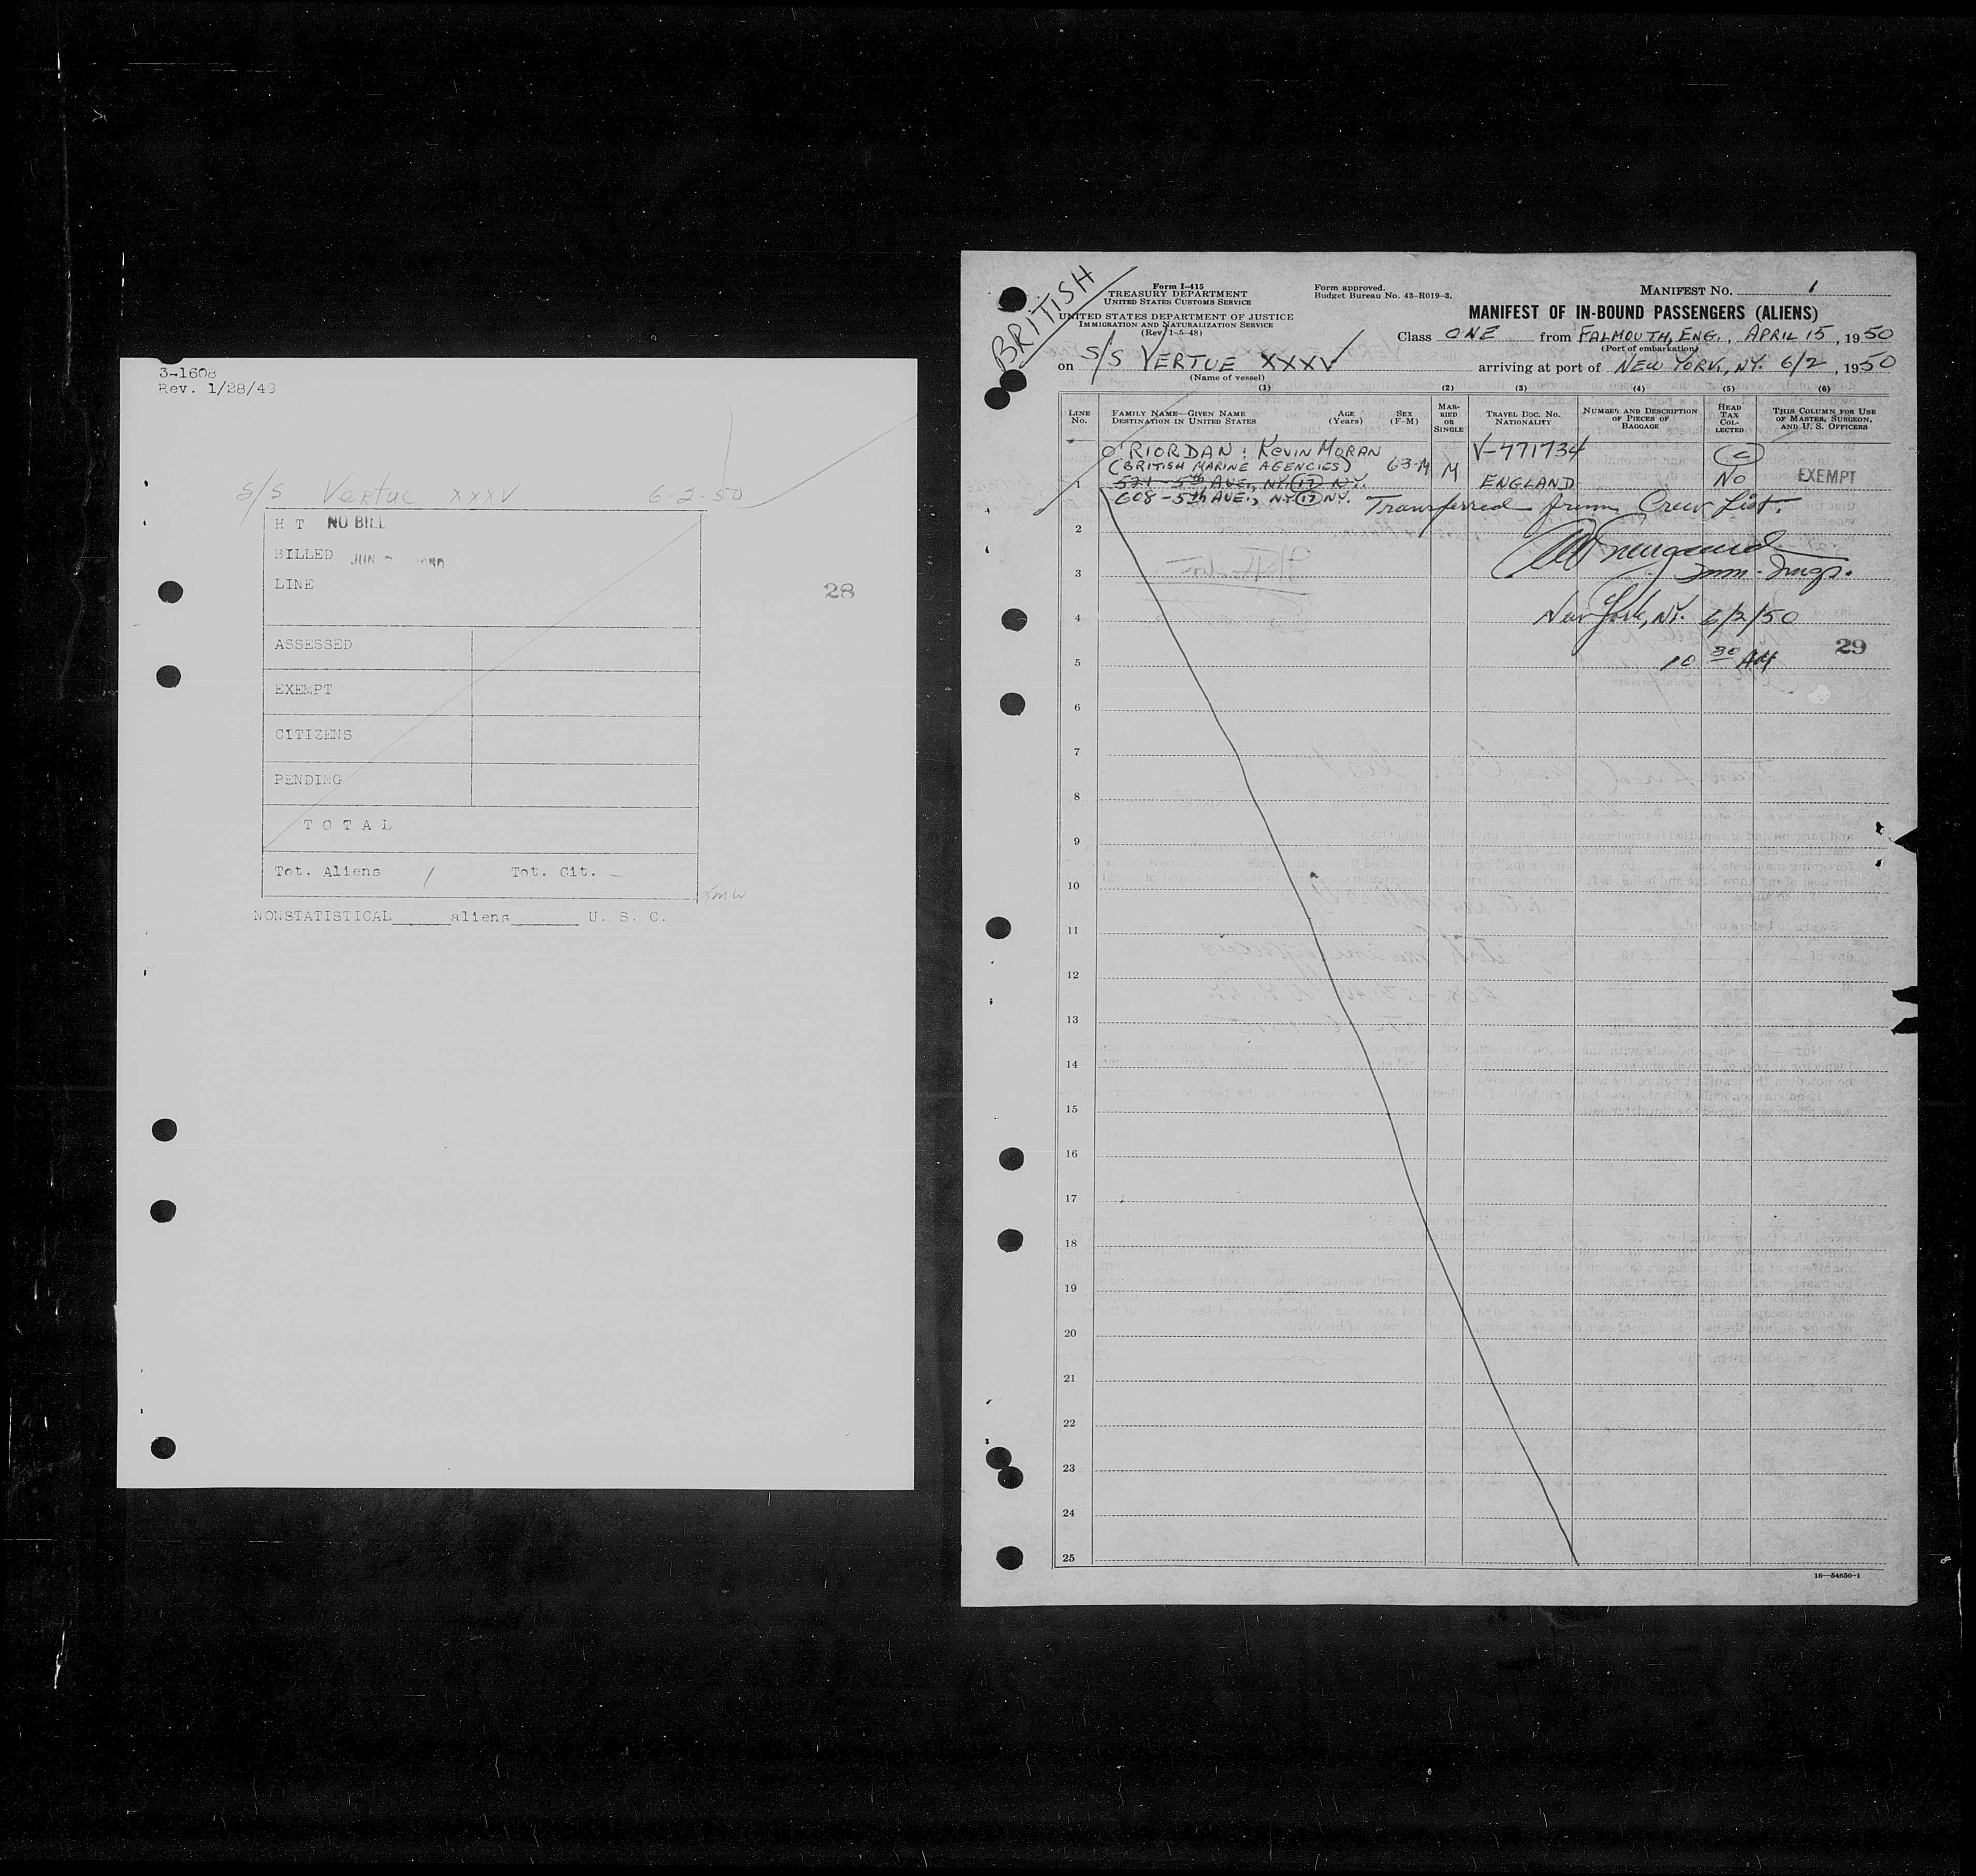 3-1608
Rev. 1/28/49
S/S Vertue XXXV 6-2-50
H T NO BILL
BILLED JUN
LINE
28
ASSESSED
EXEMPT
CITIZENS
PENDING
T O T A L
Tot. Aliens / Tot. Cit. –
NONSTATISTICAL aliens U. S. C.
BRITISH
Form I-415
TREASURY DEPARTMENT
UNITED STATES CUSTOMS SERVICE
UNITED STATES DEPARTMENT OF JUSTICE
IMMIGRATION AND NATURALIZATION SERVICE
(Rev. 1-5-48)
Form approved.
Budget Bureau No. 43-R019-3.
MANIFEST NO. 1
MANIFEST OF IN-BOUND PASSENGERS (ALIENS)
Class ONE from FALMOUTH, ENG., APRIL 15, 1950
(Port of embarkation)
on S/S VERTUE XXXV arriving at port of NEW YORK, NY. 6/2, 1950
(Name of vessel)
(1) (2) (3) (4) (5) (6)
LINE No.
FAMILY NAME—GIVEN NAME
DESTINATION IN UNITED STATES
AGE (Years)
SEX (F-M)
MARRIED OR SINGLE
TRAVEL DOC. NO. NATIONALITY
NUMBER AND DESCRIPTION OF PIECES OF BAGGAGE
HEAD TAX COLLECTED
THIS COLUMN FOR USE OF MASTER, SURGEON, AND U. S. OFFICERS
O'RIORDAN : KEVIN MORAN V-771734
(BRITISH MARINE AGENCIES) 63-M M
1 521-5th AVE., NY (17) NY. ENGLAND NO EXEMPT
608-5th AVE., NY (17) NY. Transferred from Crew List.
2
3 Imm. Insp.
4 New York, NY. 6/2/50
29
5 10 30 AM
6
7
8
9
10
11
12
13
14
15
16
17
18
19
20
21
22
23
24
25
16—54650-1